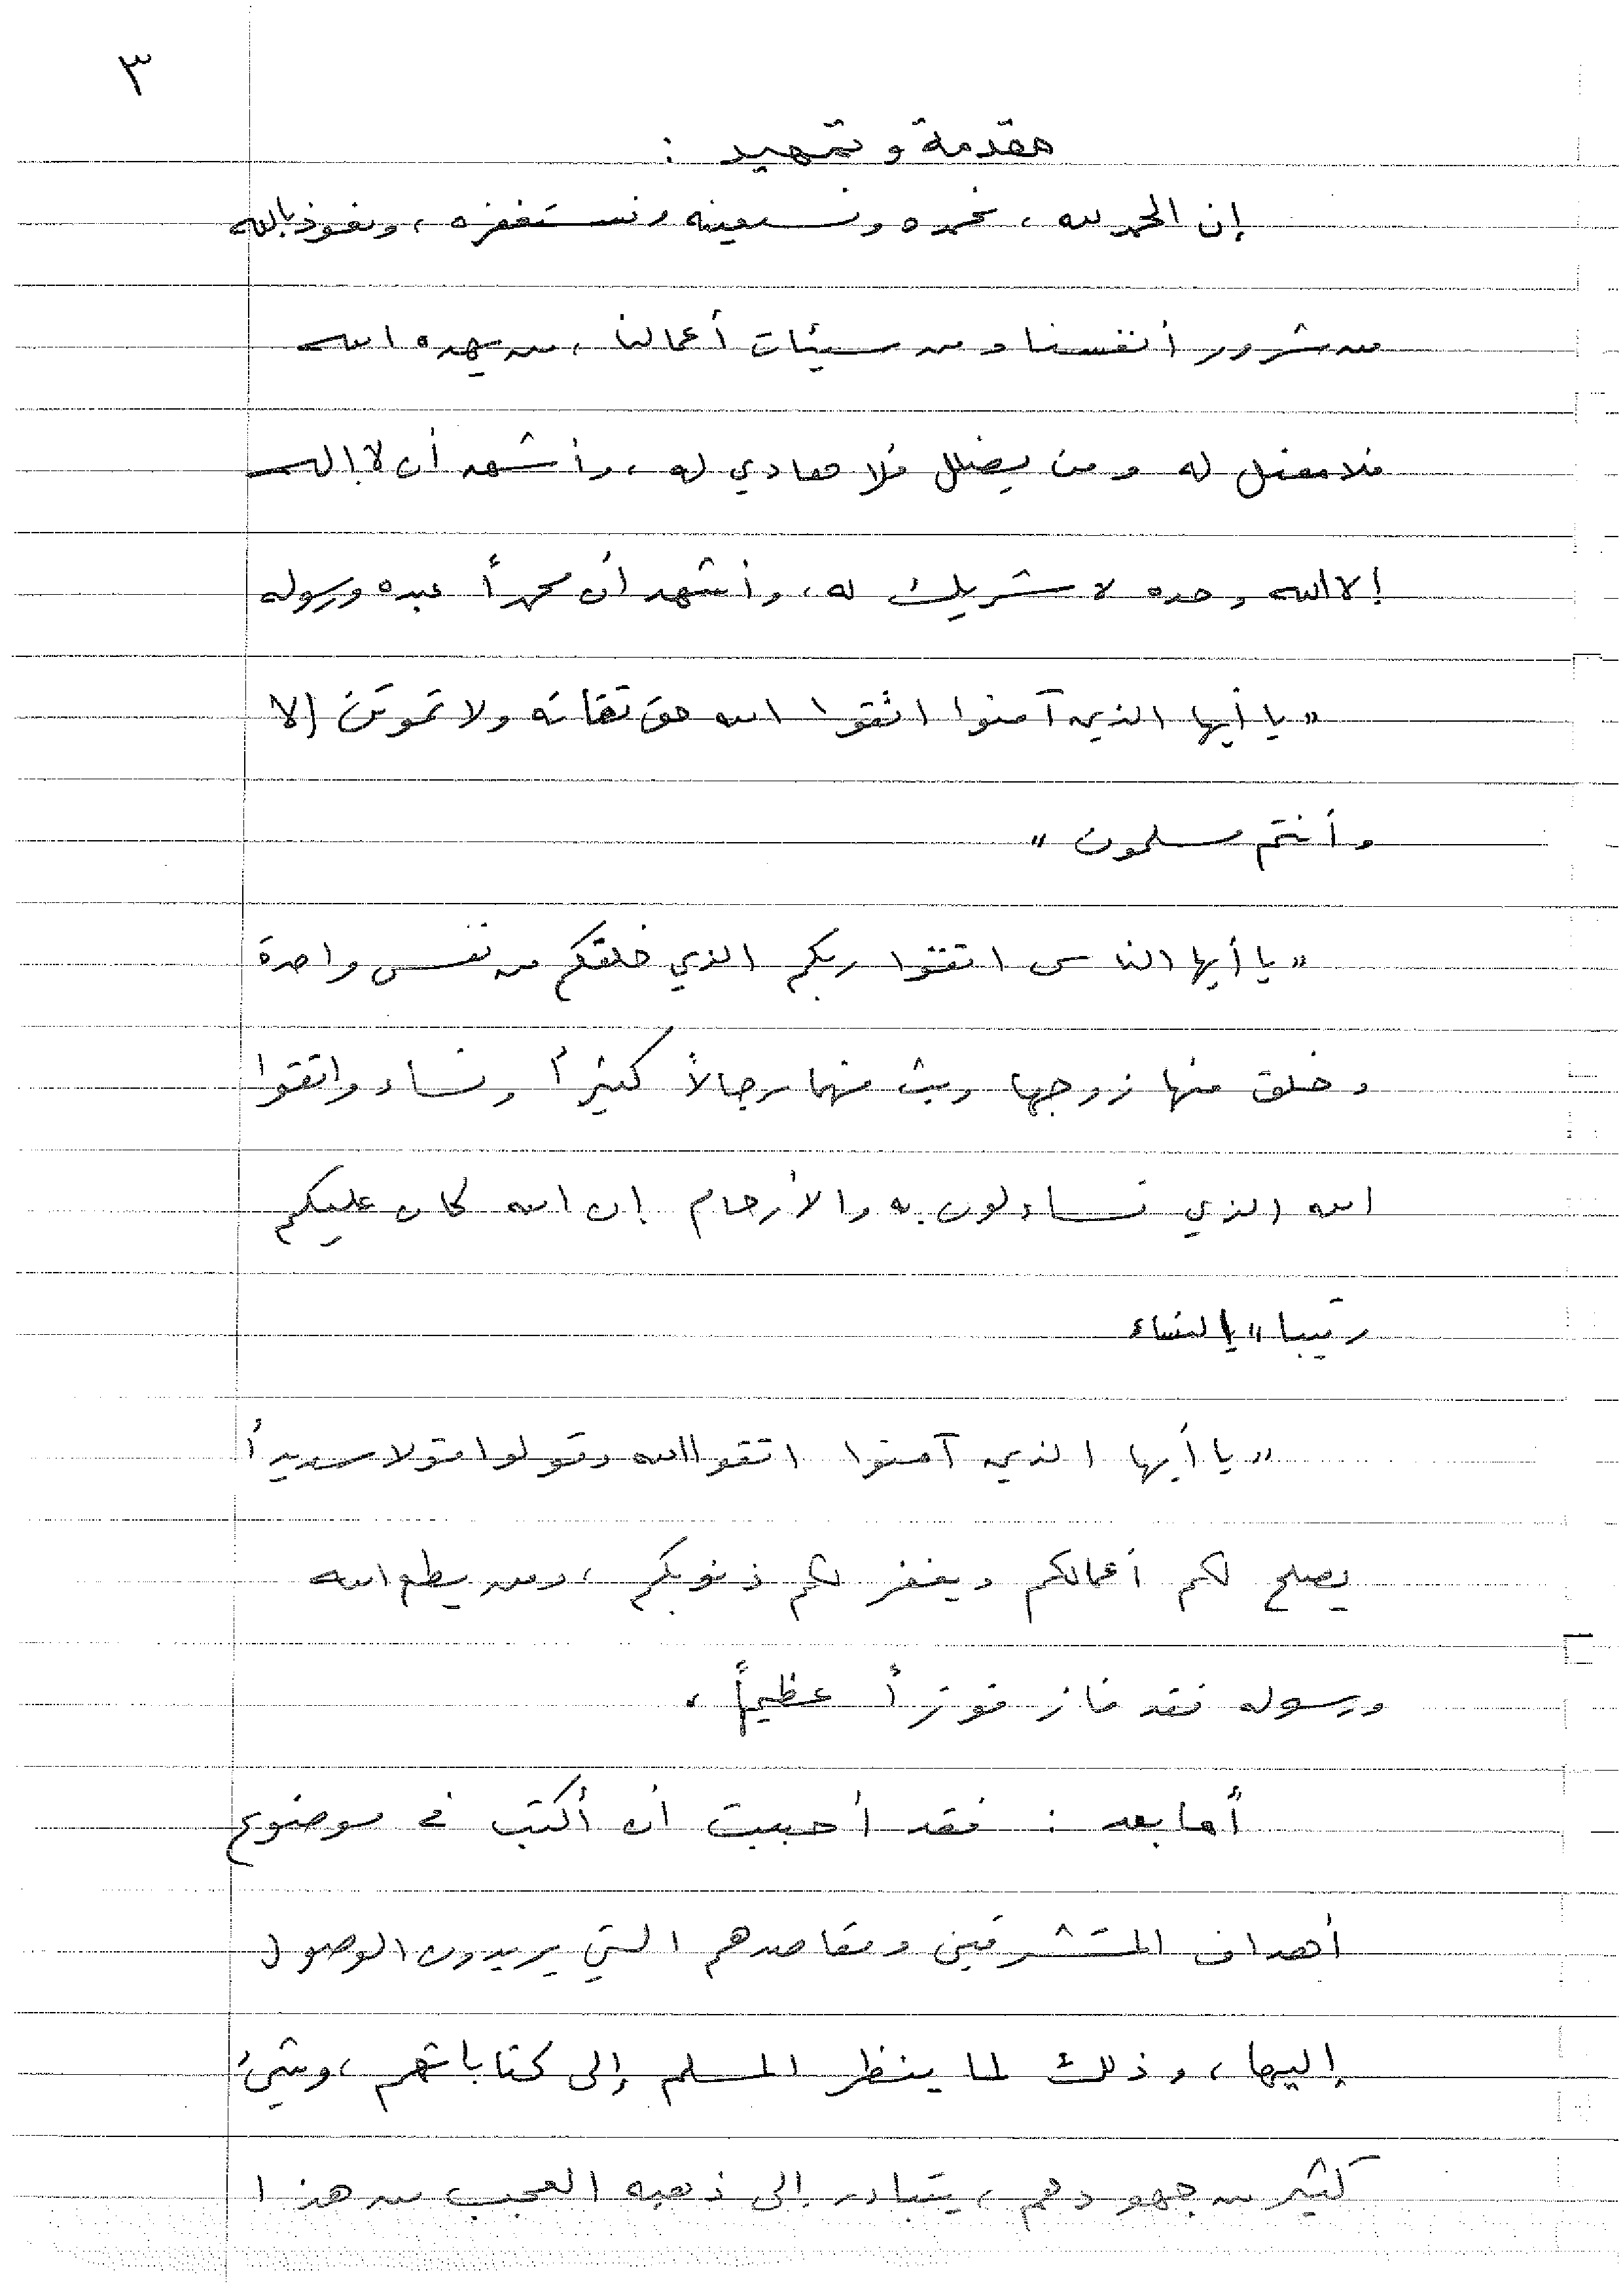 ٣
مقدمة وتمهيد :
إن الحمد لله ، نحمده ونستعينه ونستغفره ، ونعوذ بالله
من شرور أنفسنا ومن سيئات أعمالنا ، من يهده الله
فلا مضل له ومن يضلل فلا هادي له ، وأشهد أن لا إله
إلا الله وحده لا شريك له ، وأشهد أن محمداً عبده ورسوله
" يا أيها الذين آمنوا اتقوا الله حق تقاته ولا تموتن إلا
وأنتم مسلمون "
" يا أيها الناس اتقوا ربكم الذي خلقكم من نفس واحدة
وخلق منها زوجها وبث منهما رجالاً كثيراً ونساء واتقوا
الله الذي تساءلون به والأرحام إن الله كان عليكم
رقيبا " النساء
" يا أيها الذين آمنوا اتقوا الله وقولوا قولا سديداً
يصلح لكم أعمالكم ويغفر لكم ذنوبكم ، ومن يطع الله
ورسوله فقد فاز فوزاً عظيماً ،
أما بعد : فقد أحببت أن أكتب في موضوع
أهداف المستشرقين ومقاصدهم التي يريدون الوصول
إليها ، وذلك لما ينظر المسلم إلى كتاباتهم ، وشيء
كثير من جهودهم ، يتبادر إلى ذهنه العجب من هذا